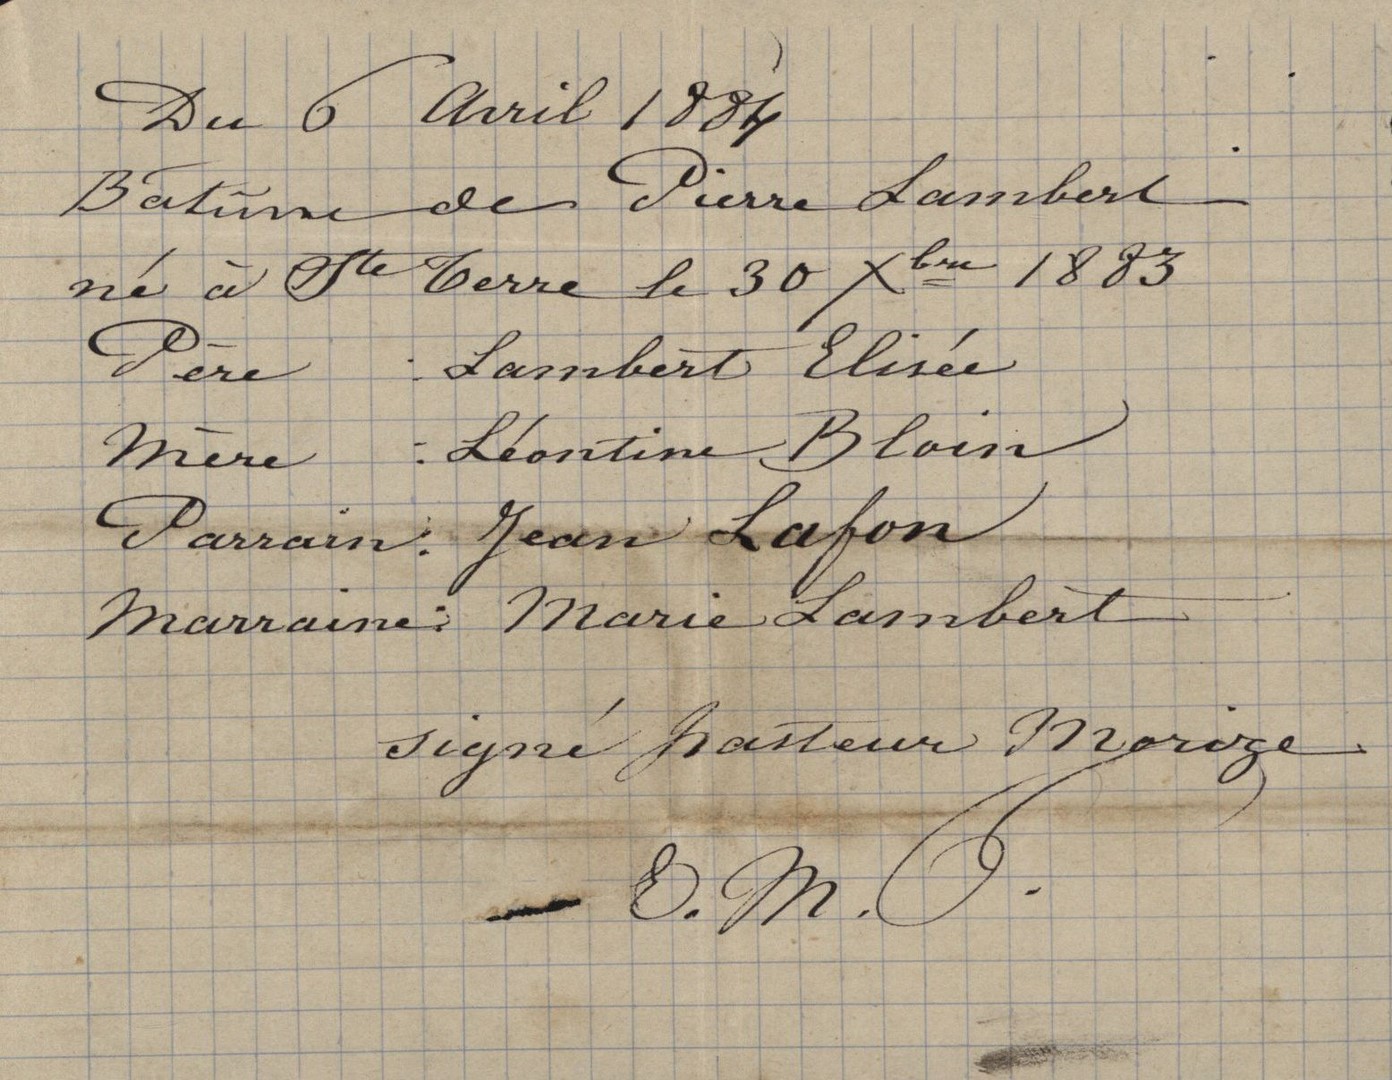 Du 6 Avril 1884
Batême de Pierre Lambert
né à Ste Terre le 30 Xbre 1883
Père : Lambert Elisée
Mère : Léontine Bloin
Parrain : Jean Lafon
Marraine : Marie Lambert
signé pasteur Morize
E. M.